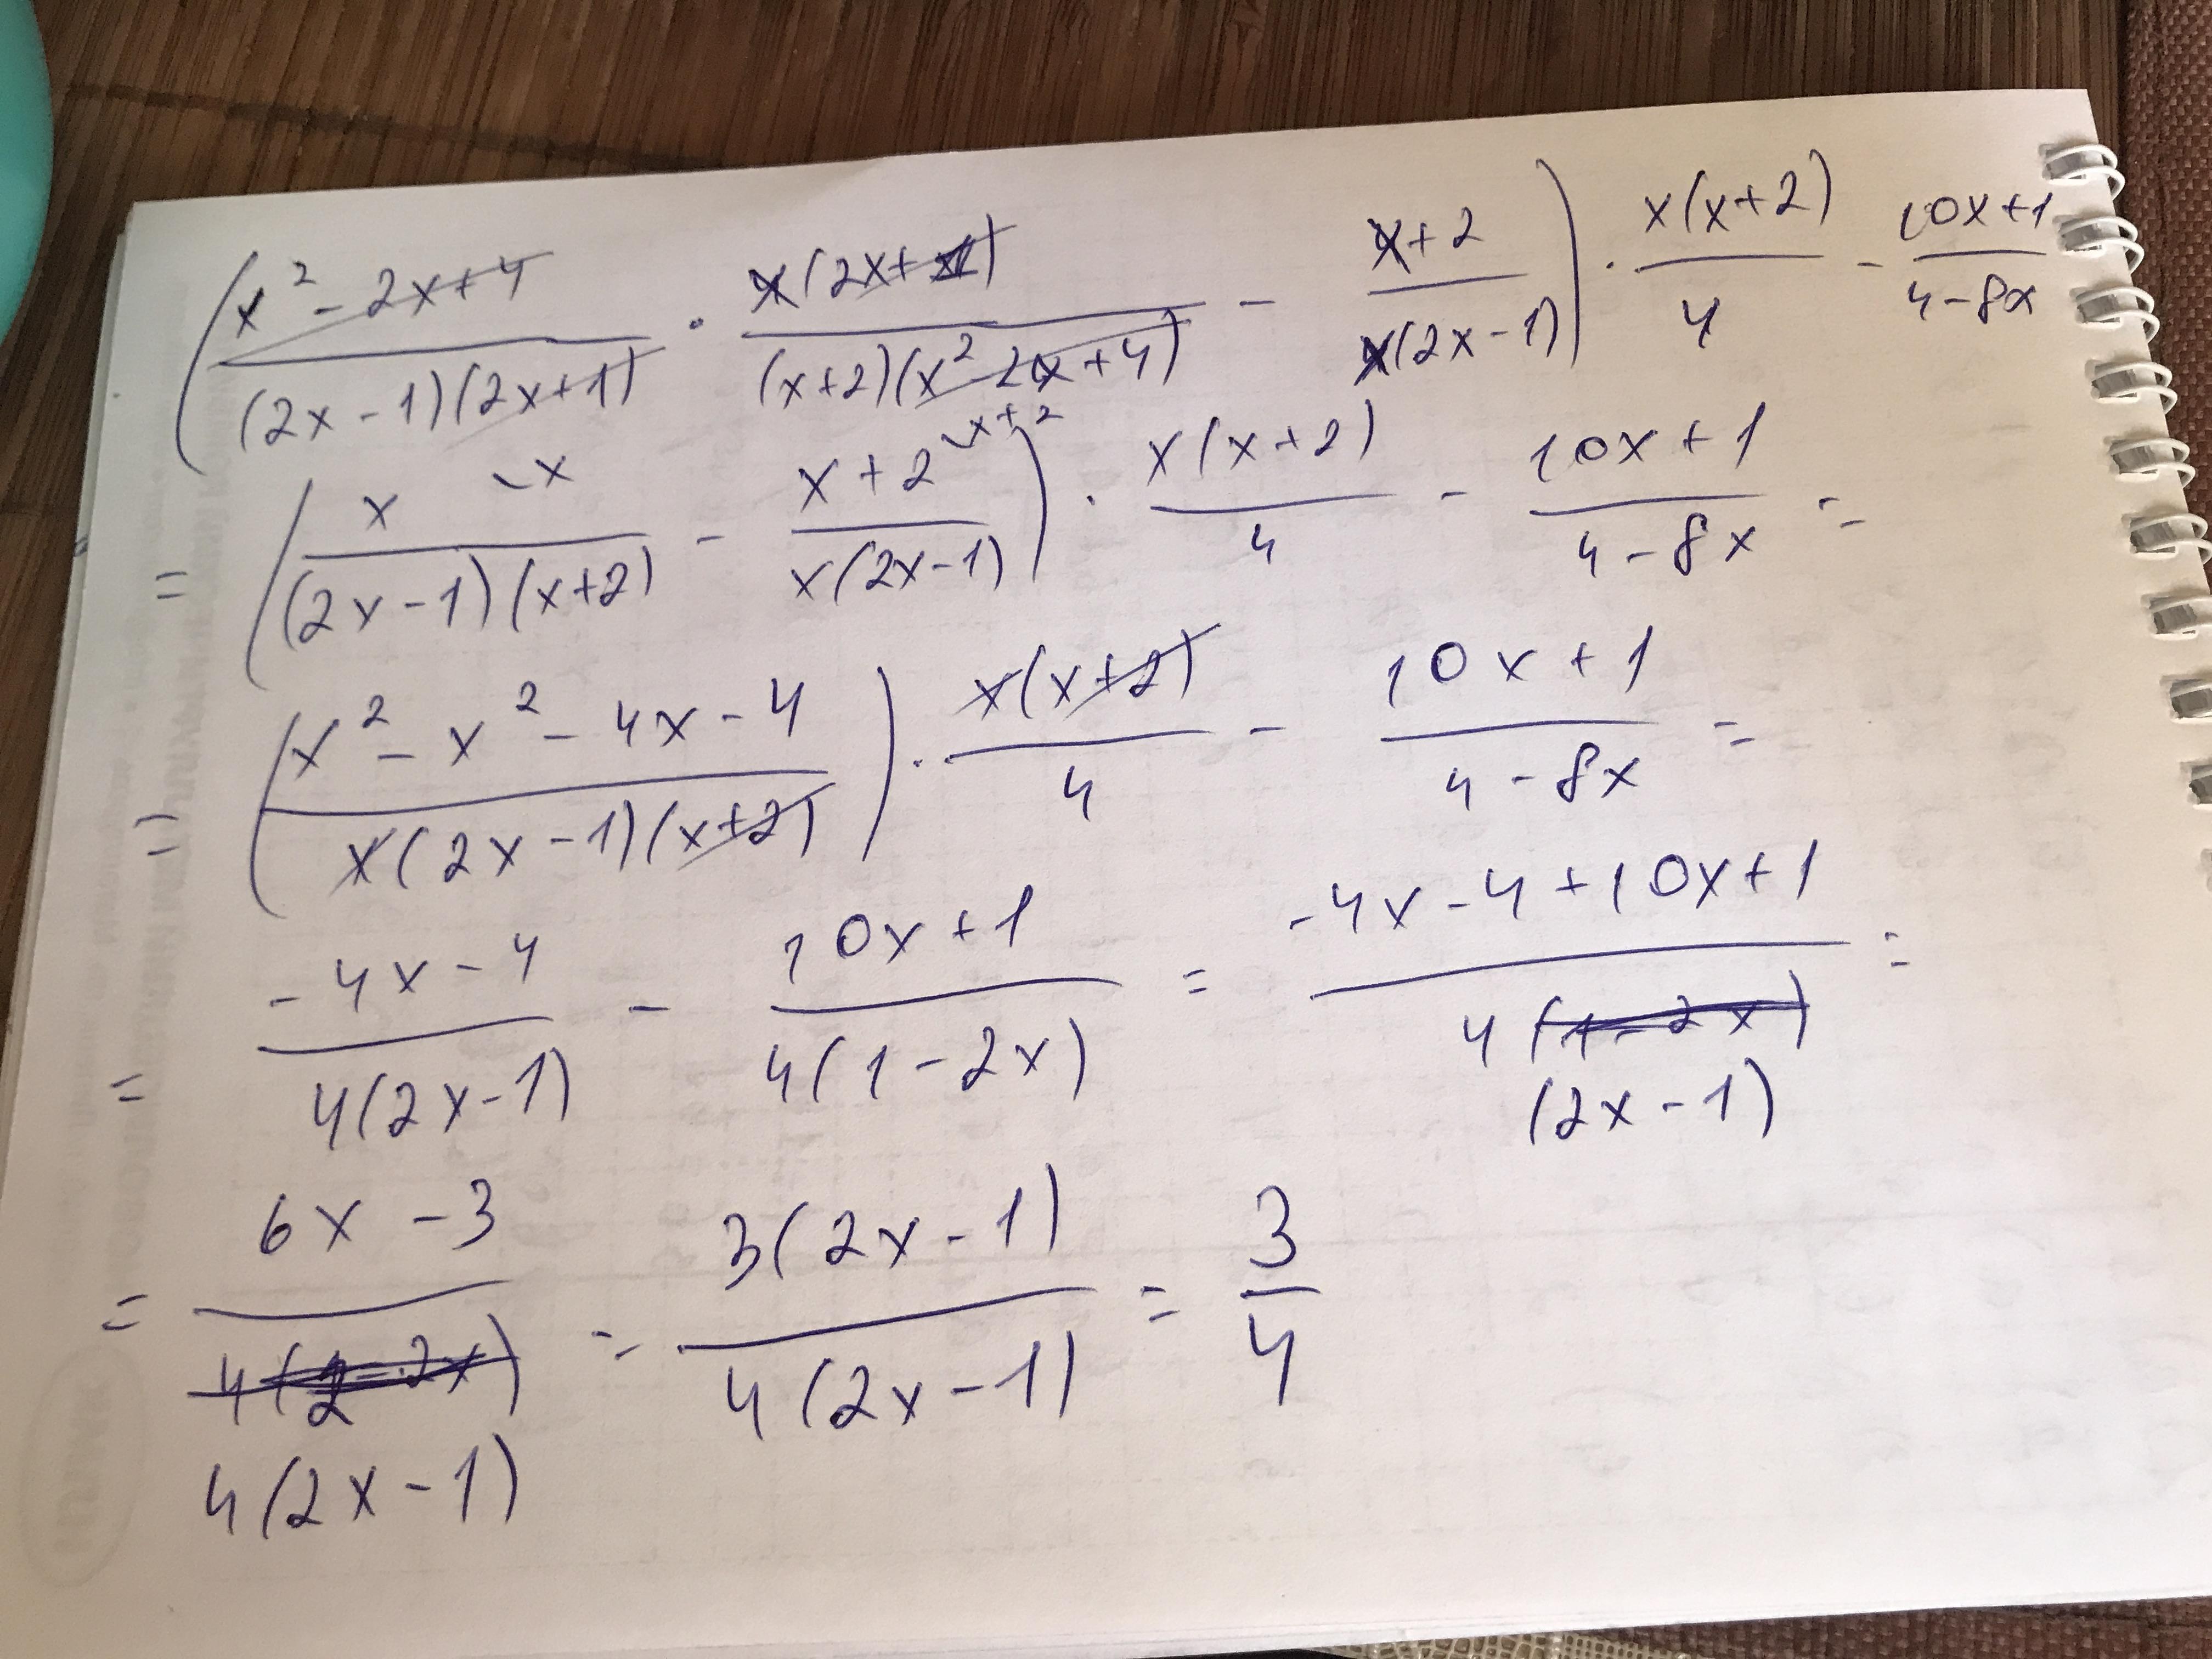 (x² - 2x+4 / (2x-1)(2x+1) · x(2x+1) / (x+2)(x² - 2x+4) - x+2 / x(2x-1)) · x(x+2) / 4 - 10x+1 / 4-8x
= (x \x / (2x-1)(x+2) - x+2 \x+2 / x(2x-1)) · x(x+2) / 4 - 10x+1 / 4-8x =
= (x² - x² - 4x - 4 / x(2x-1)(x+2)) · x(x+2) / 4 - 10x+1 / 4-8x =
= -4x-4 / 4(2x-1) - 10x+1 / 4(1-2x) = -4x-4+10x+1 / 4(1-2x) (2x-1) =
= 6x-3 / 4(2-2x) 4(2x-1) = 3(2x-1) / 4(2x-1) = 3 / 4